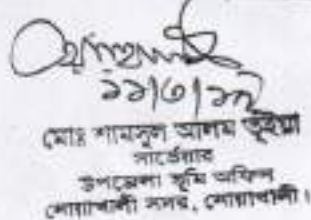 ১১|৩|১৯
মোঃ শামসুল আলম ভূঁইয়া
সার্ভেয়ার
উপজেলা ভূমি অফিস
নোয়াখালী সদর, নোয়াখালী।